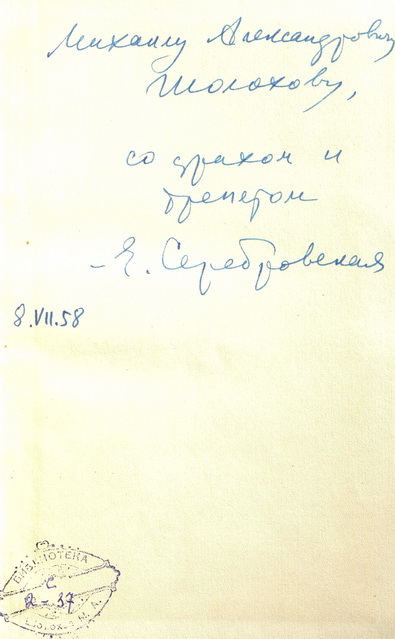 Михаилу Александровичу
Шолохову,
со страхом и
трепетом
– Е. Серебровская
8.VII.58
БИБЛИОТЕКА
С
2-37
ШОЛОХОВ М. А.